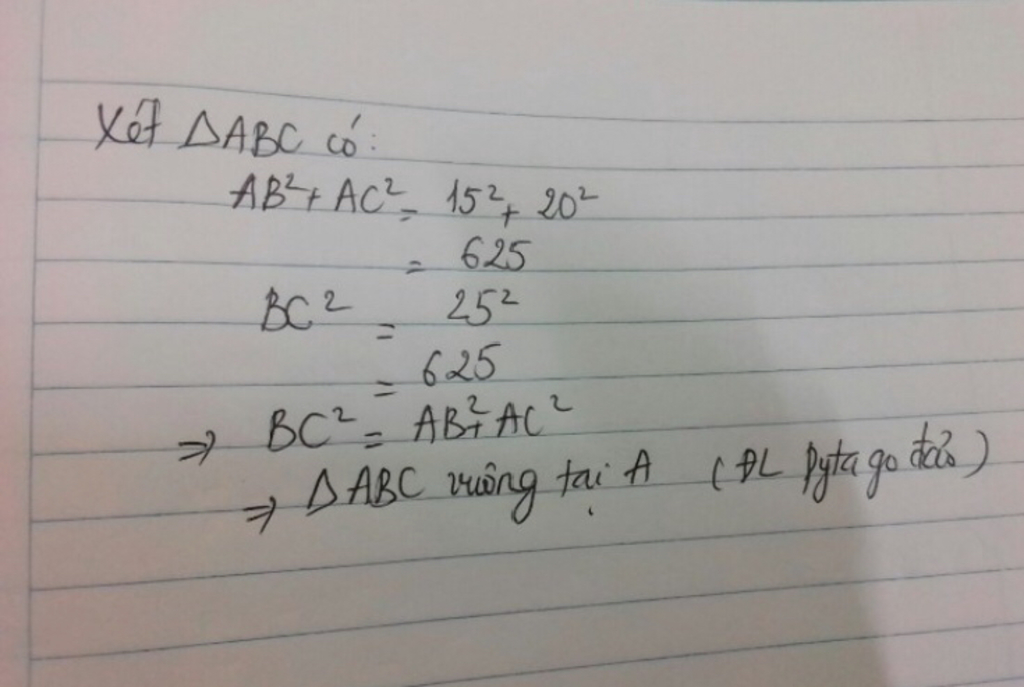 Xét ΔABC có:
AB² + AC² = 15² + 20²
= 625
BC² = 25²
= 625
⇒ BC² = AB² + AC²
⇒ ΔABC vuông tại A (ĐL Pytago đảo)